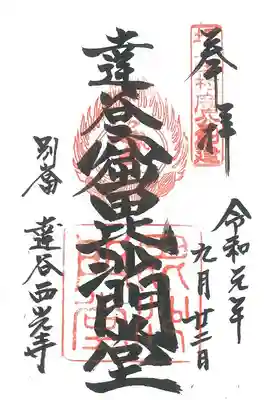 奉拝
令和元年
九月廿二日
達谷窟毘沙門堂
別當
達谷西光寺